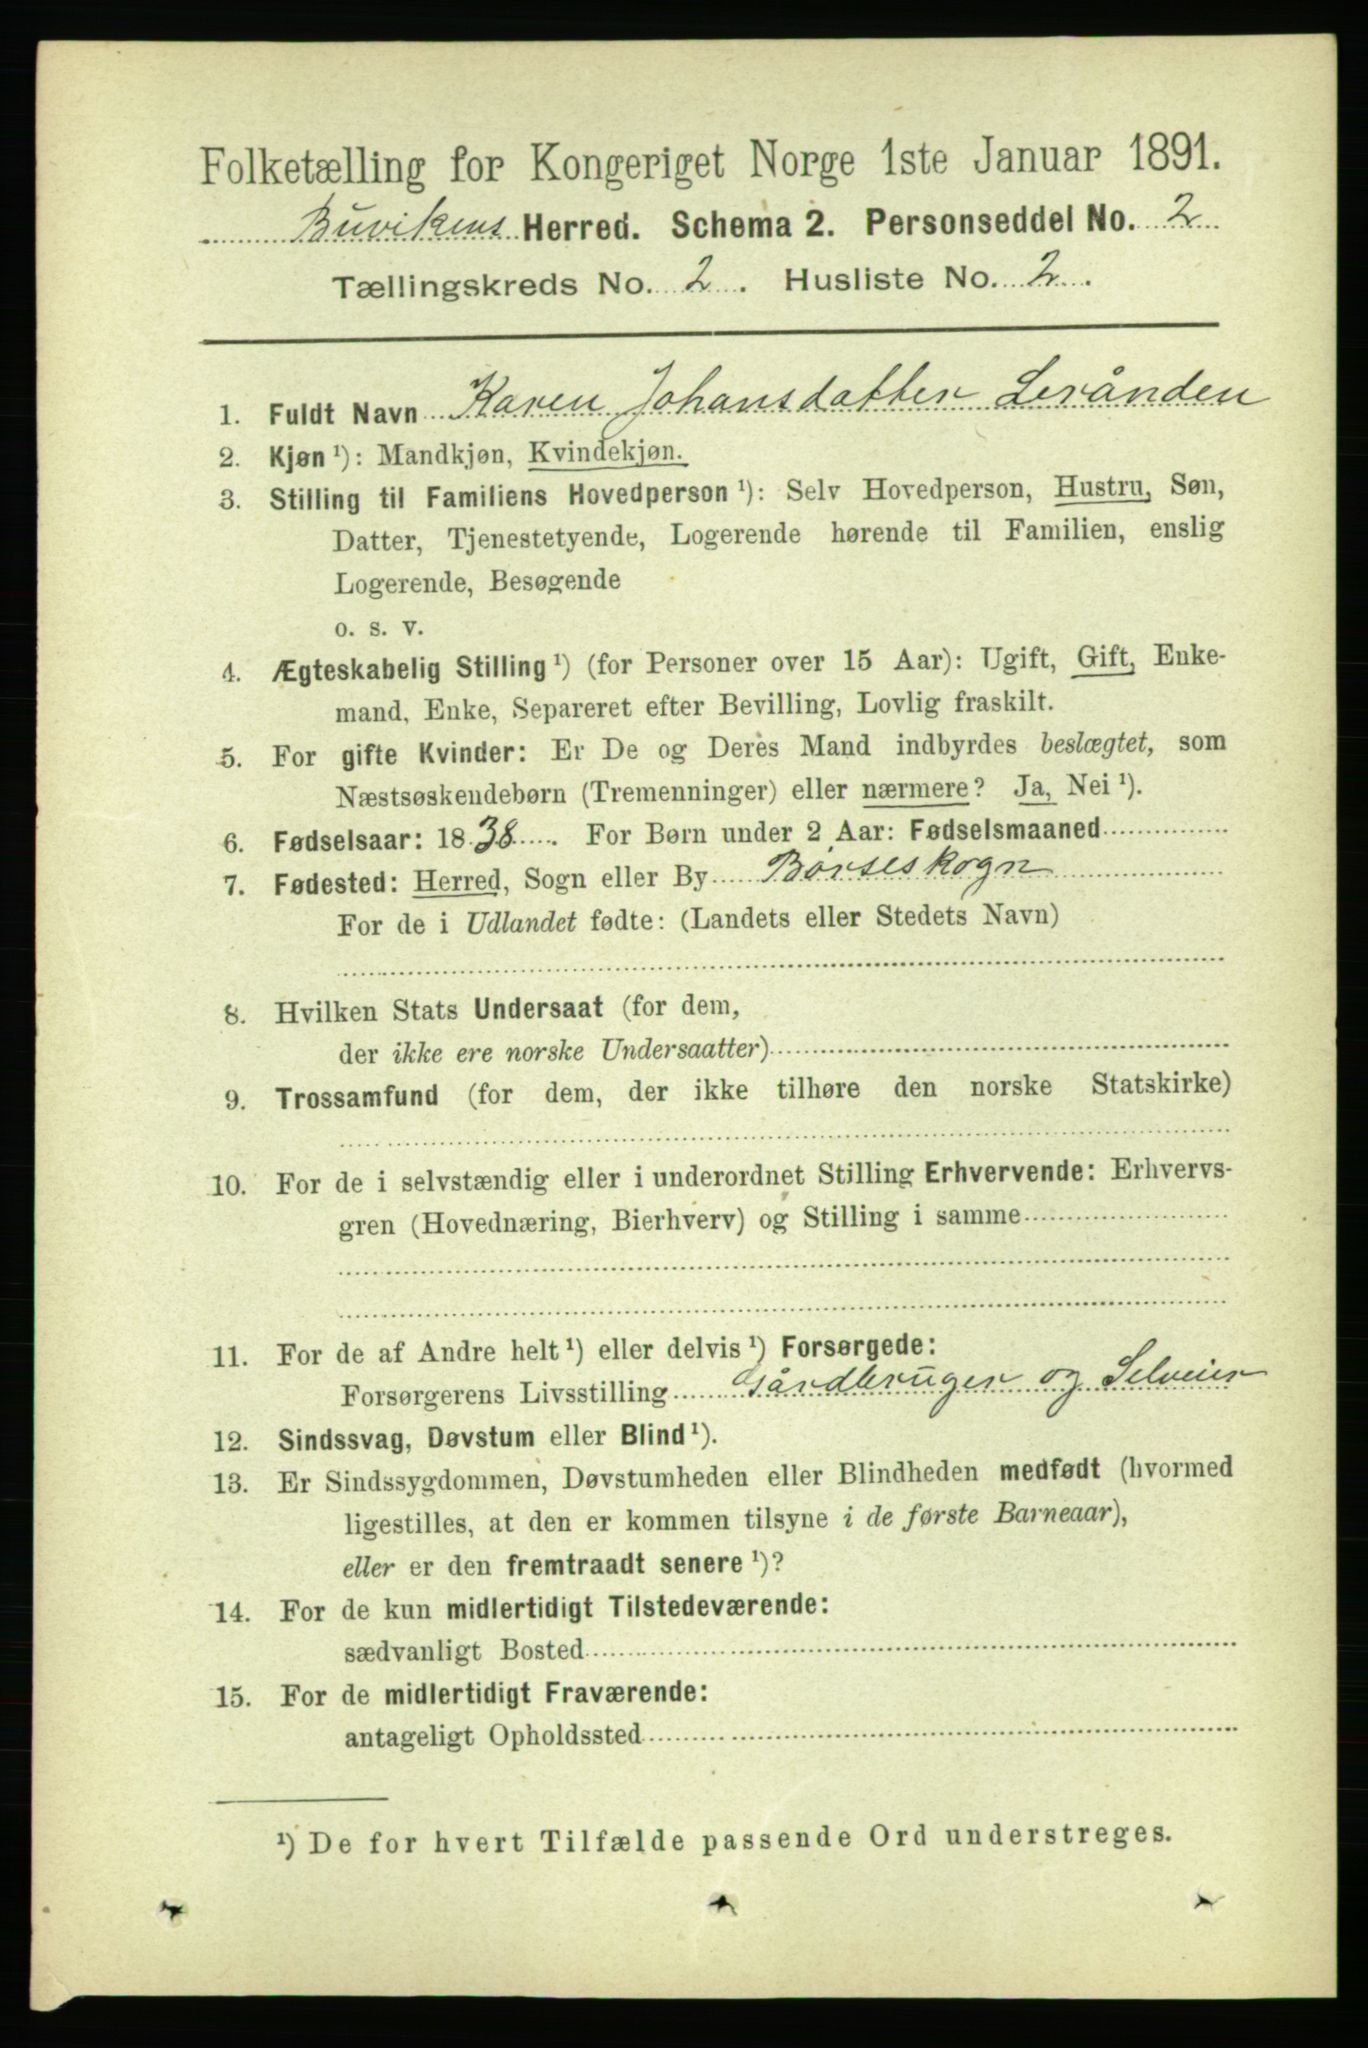 Folketælling for Kongeriget Norge 1ste Januar 1891.
Buvikens Herred. Schema 2. Personseddel No. 2
Tællingskreds No. 2. Husliste No. 2.
1. Fuldt Navn Karen Johansdatter Leränden
2. Kjøn ¹): Mandkjøn, Kvindekjøn.
3. Stilling til Familiens Hovedperson ¹): Selv Hovedperson, Hustru, Søn,
Datter, Tjenestetyende, Logerende hørende til Familien, enslig
Logerende, Besøgende
o. s. v.
4. Ægteskabelig Stilling ¹) (for Personer over 15 Aar): Ugift, Gift, Enke-
mand, Enke, Separeret efter Bevilling, Lovlig fraskilt.
5. For gifte Kvinder: Er De og Deres Mand indbyrdes beslægtet, som
Næstsøskendebørn (Tremenninger) eller nærmere? Ja, Nei ¹).
6. Fødselsaar: 1838. For Børn under 2 Aar: Fødselsmaaned
7. Fødested: Herred, Sogn eller By Börseskogn
For de i Udlandet fødte: (Landets eller Stedets Navn)
8. Hvilken Stats Undersaat (for dem,
der ikke ere norske Undersaatter)
9. Trossamfund (for dem, der ikke tilhøre den norske Statskirke)
10. For de i selvstændig eller i underordnet Stilling Erhvervende: Erhvervs-
gren (Hovednæring, Bierhverv) og Stilling i samme
11. For de af Andre helt ¹) eller delvis ¹) Forsørgede:
Forsørgerens Livsstilling Gårdbruger og Selveier
12. Sindssvag, Døvstum eller Blind ¹).
13. Er Sindssygdommen, Døvstumheden eller Blindheden medfødt (hvormed
ligestilles, at den er kommen tilsyne i de første Barneaar),
eller er den fremtraadt senere ¹)?
14. For de kun midlertidigt Tilstedeværende:
sædvanligt Bosted
15. For de midlertidigt Fraværende:
antageligt Opholdssted
¹) De for hvert Tilfælde passende Ord understreges.